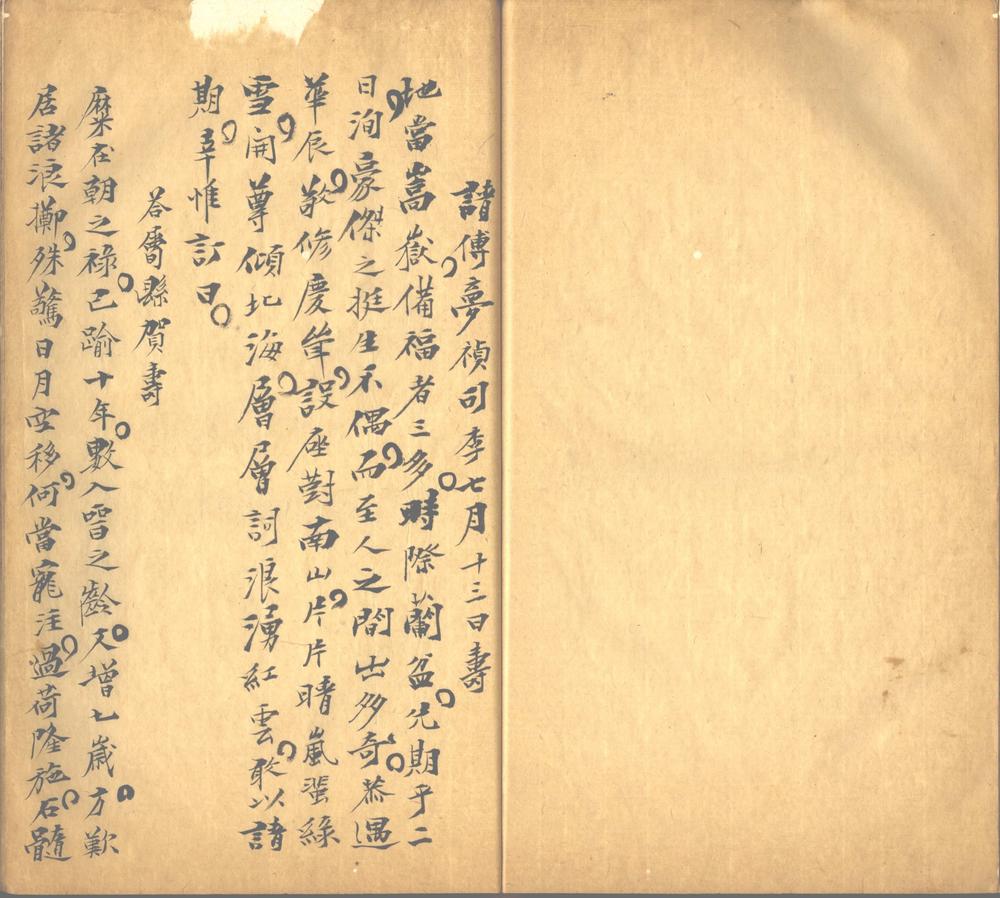 請傅夢禎司李七月十三日壽
地當嵩嶽備福者三多時際蘭盆先期乎二
日洵豪傑之挺生不偶而至人之間出多奇恭遇
華辰敬修慶斝設座對南山片片晴嵐蜚綠
雪開尊傾北海層層詞浪湧紅雲敢以請
期幸惟訂日
荅胥縣賀壽
糜在朝之祿已踰十年數入晉之齡又增七歲方歎
居諸浪擲殊驚日月空移何當寵注過荷隆施石髓